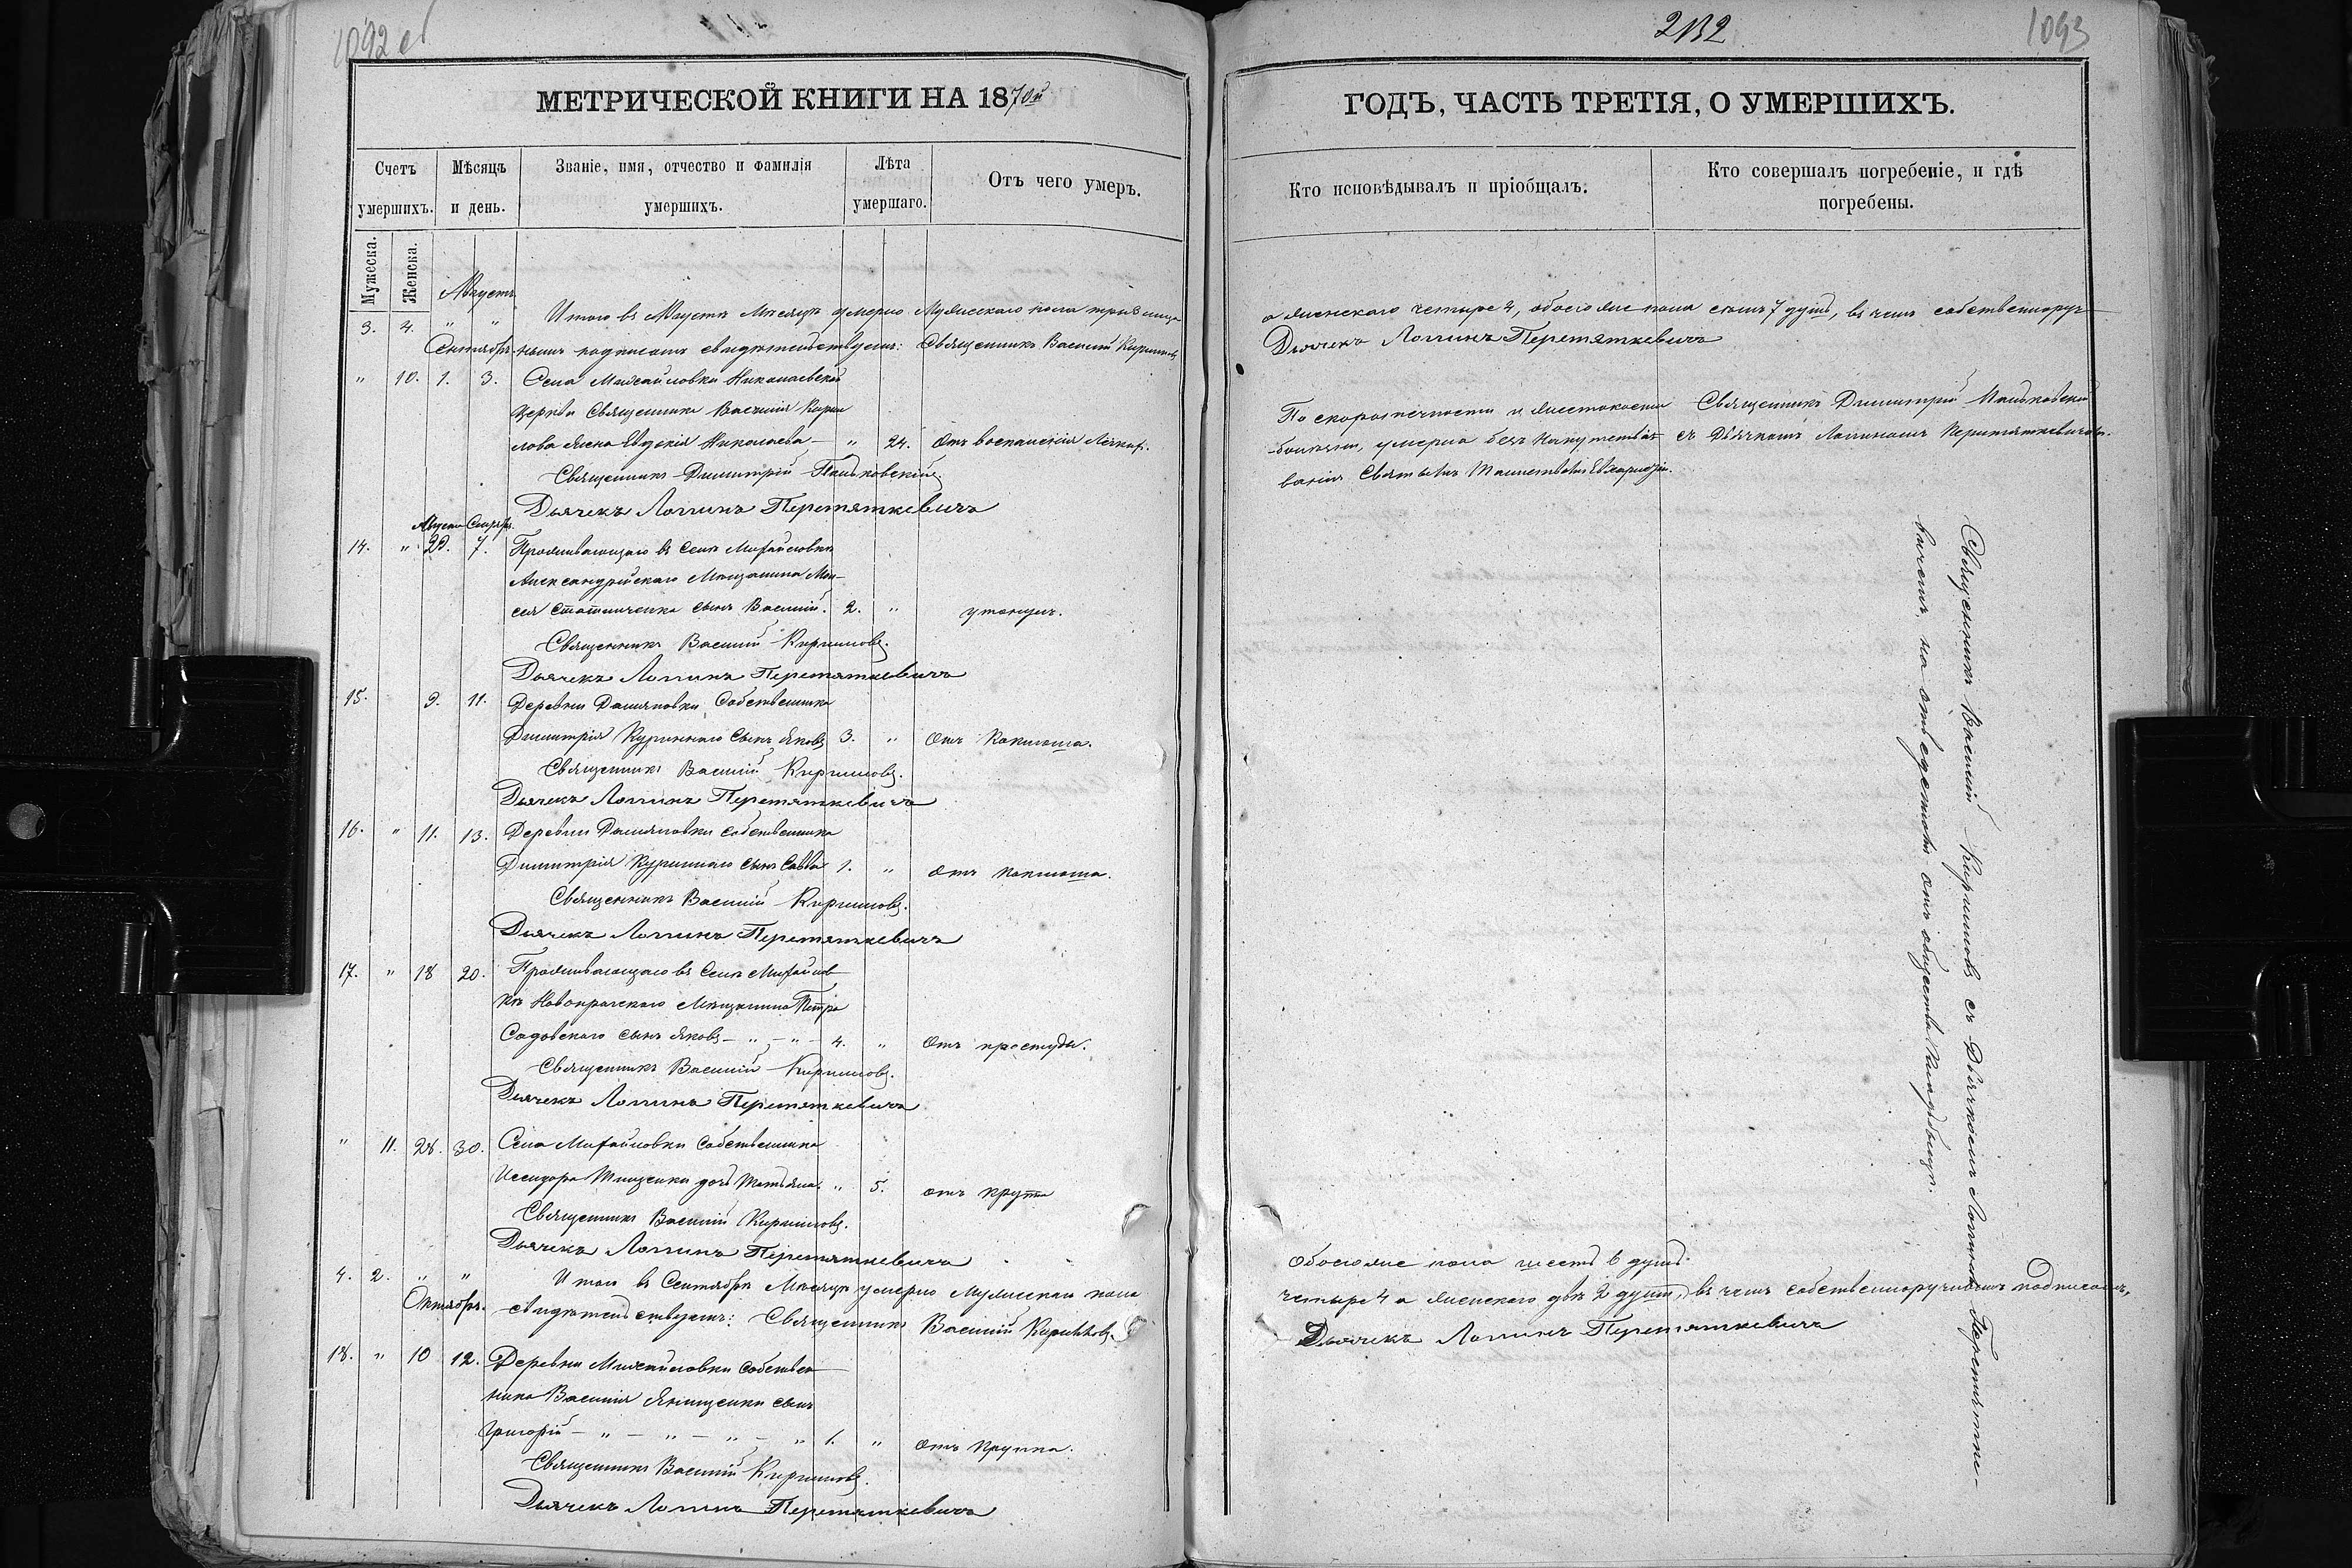 1092 об
МЕТРИЧЕСКОЙ КНИГИ НА 1870й
Счетъ умершихъ.
Мѣсяцъ и день.
Званіе, имя, отчество и фамилія умершихъ.
Лѣта умершаго.
Отъ чего умеръ.
Мужеска.
Женска.
Августъ
3. 4. " " Итого въ Августѣ Мѣсяцѣ умерло Мужескаго пола три 3 лица
Сентябрь. нымъ подписомъ свидѣтельствуемъ: Священникъ Василій Кириловъ
" 10. 1. 3. Села Михайловки Николаевской
церкви Священника Василія Кири
лова жена Евдокія Николаева — " 24. Отъ воспаленія
Священникъ Димитрій
Дьячекъ Логинъ Перетяткевичъ
Августъ Сентябр.
14. " 29. 7. Проживающаго въ Селѣ Михайловки
Александрійскаго Мѣщанина Мои-
сея сынъ Василій. 2. " утонулъ.
Священникъ Василій Кириловъ.
Дьячекъ Логинъ Перетяткевичъ
15. 9. 11. Деревни Собственника
Димитрія Куриннаго сынъ Яковъ 3. " Отъ Коклюша.
Священникъ Василій Кириловъ.
Дьячекъ Логинъ Перетяткевичъ
16. " 11. 13. Деревни собственника
Димитрія Куриннаго сынъ Савва 1. " Отъ коклюша.
Священникъ Василій Кириловъ.
Дьячекъ Логинъ Перетяткевичъ
17. " 18 20. Проживающаго въ Селѣ Михайлов
кѣ Мѣщанина Петра
Садовскаго сынъ Яковъ — " — " — 4. " Отъ простуды.
Священникъ Василій Кириловъ.
Дьячекъ Логинъ Перетяткевичъ
" 11. 28. 30. Села Михайловки Собственника
Исидора Тищенка дочь Татьяна. " 5. отъ крупа
Священникъ Василій Кириловъ.
Дьячекъ Логинъ Перетяткевичъ
4. 2. " " Итого въ Сентябрѣ Мѣсяцѣ умерло Мужескаго пола
Октябрь. свидѣтельствуемъ: Священникъ Василій Кириловъ.
18. " 10 12. Деревни Михайловки собствен
ника Василія Янищенка сынъ
Григорій — " — " — " — " 1. " Отъ Крупа.
Священникъ Василій Кириловъ.
Дьячекъ Логинъ Перетяткевичъ
2132
1093
ГОДЪ, ЧАСТЬ ТРЕТІЯ, О УМЕРШИХЪ.
Кто исповѣдывалъ и пріобщалъ.
Кто совершалъ погребеніе, и гдѣ погребены.
а женскаго четыре 4, обоего же пола семь 7 душъ, въ чемъ собственноруч
Дьячекъ Логинъ Перетяткевичъ
По скоропечности и жестокости Священникъ Димитрій
болѣзни, умерла безъ съ Дьячкомъ Логиномъ Перетяткевичемъ.
ванія Святыхъ Таинствъ
Священникъ Василій Кириловъ съ Дьячкомъ Логиномъ Перетятке-
вичемъ, на отведенномъ отъ общества кладбищѣ.
обоего же пола шесть 6 душъ.
четыре 4 а женскаго двѣ 2 душъ, въ чемъ собственноручнымъ подписомъ,
Дьячекъ Логинъ Перетяткевичъ